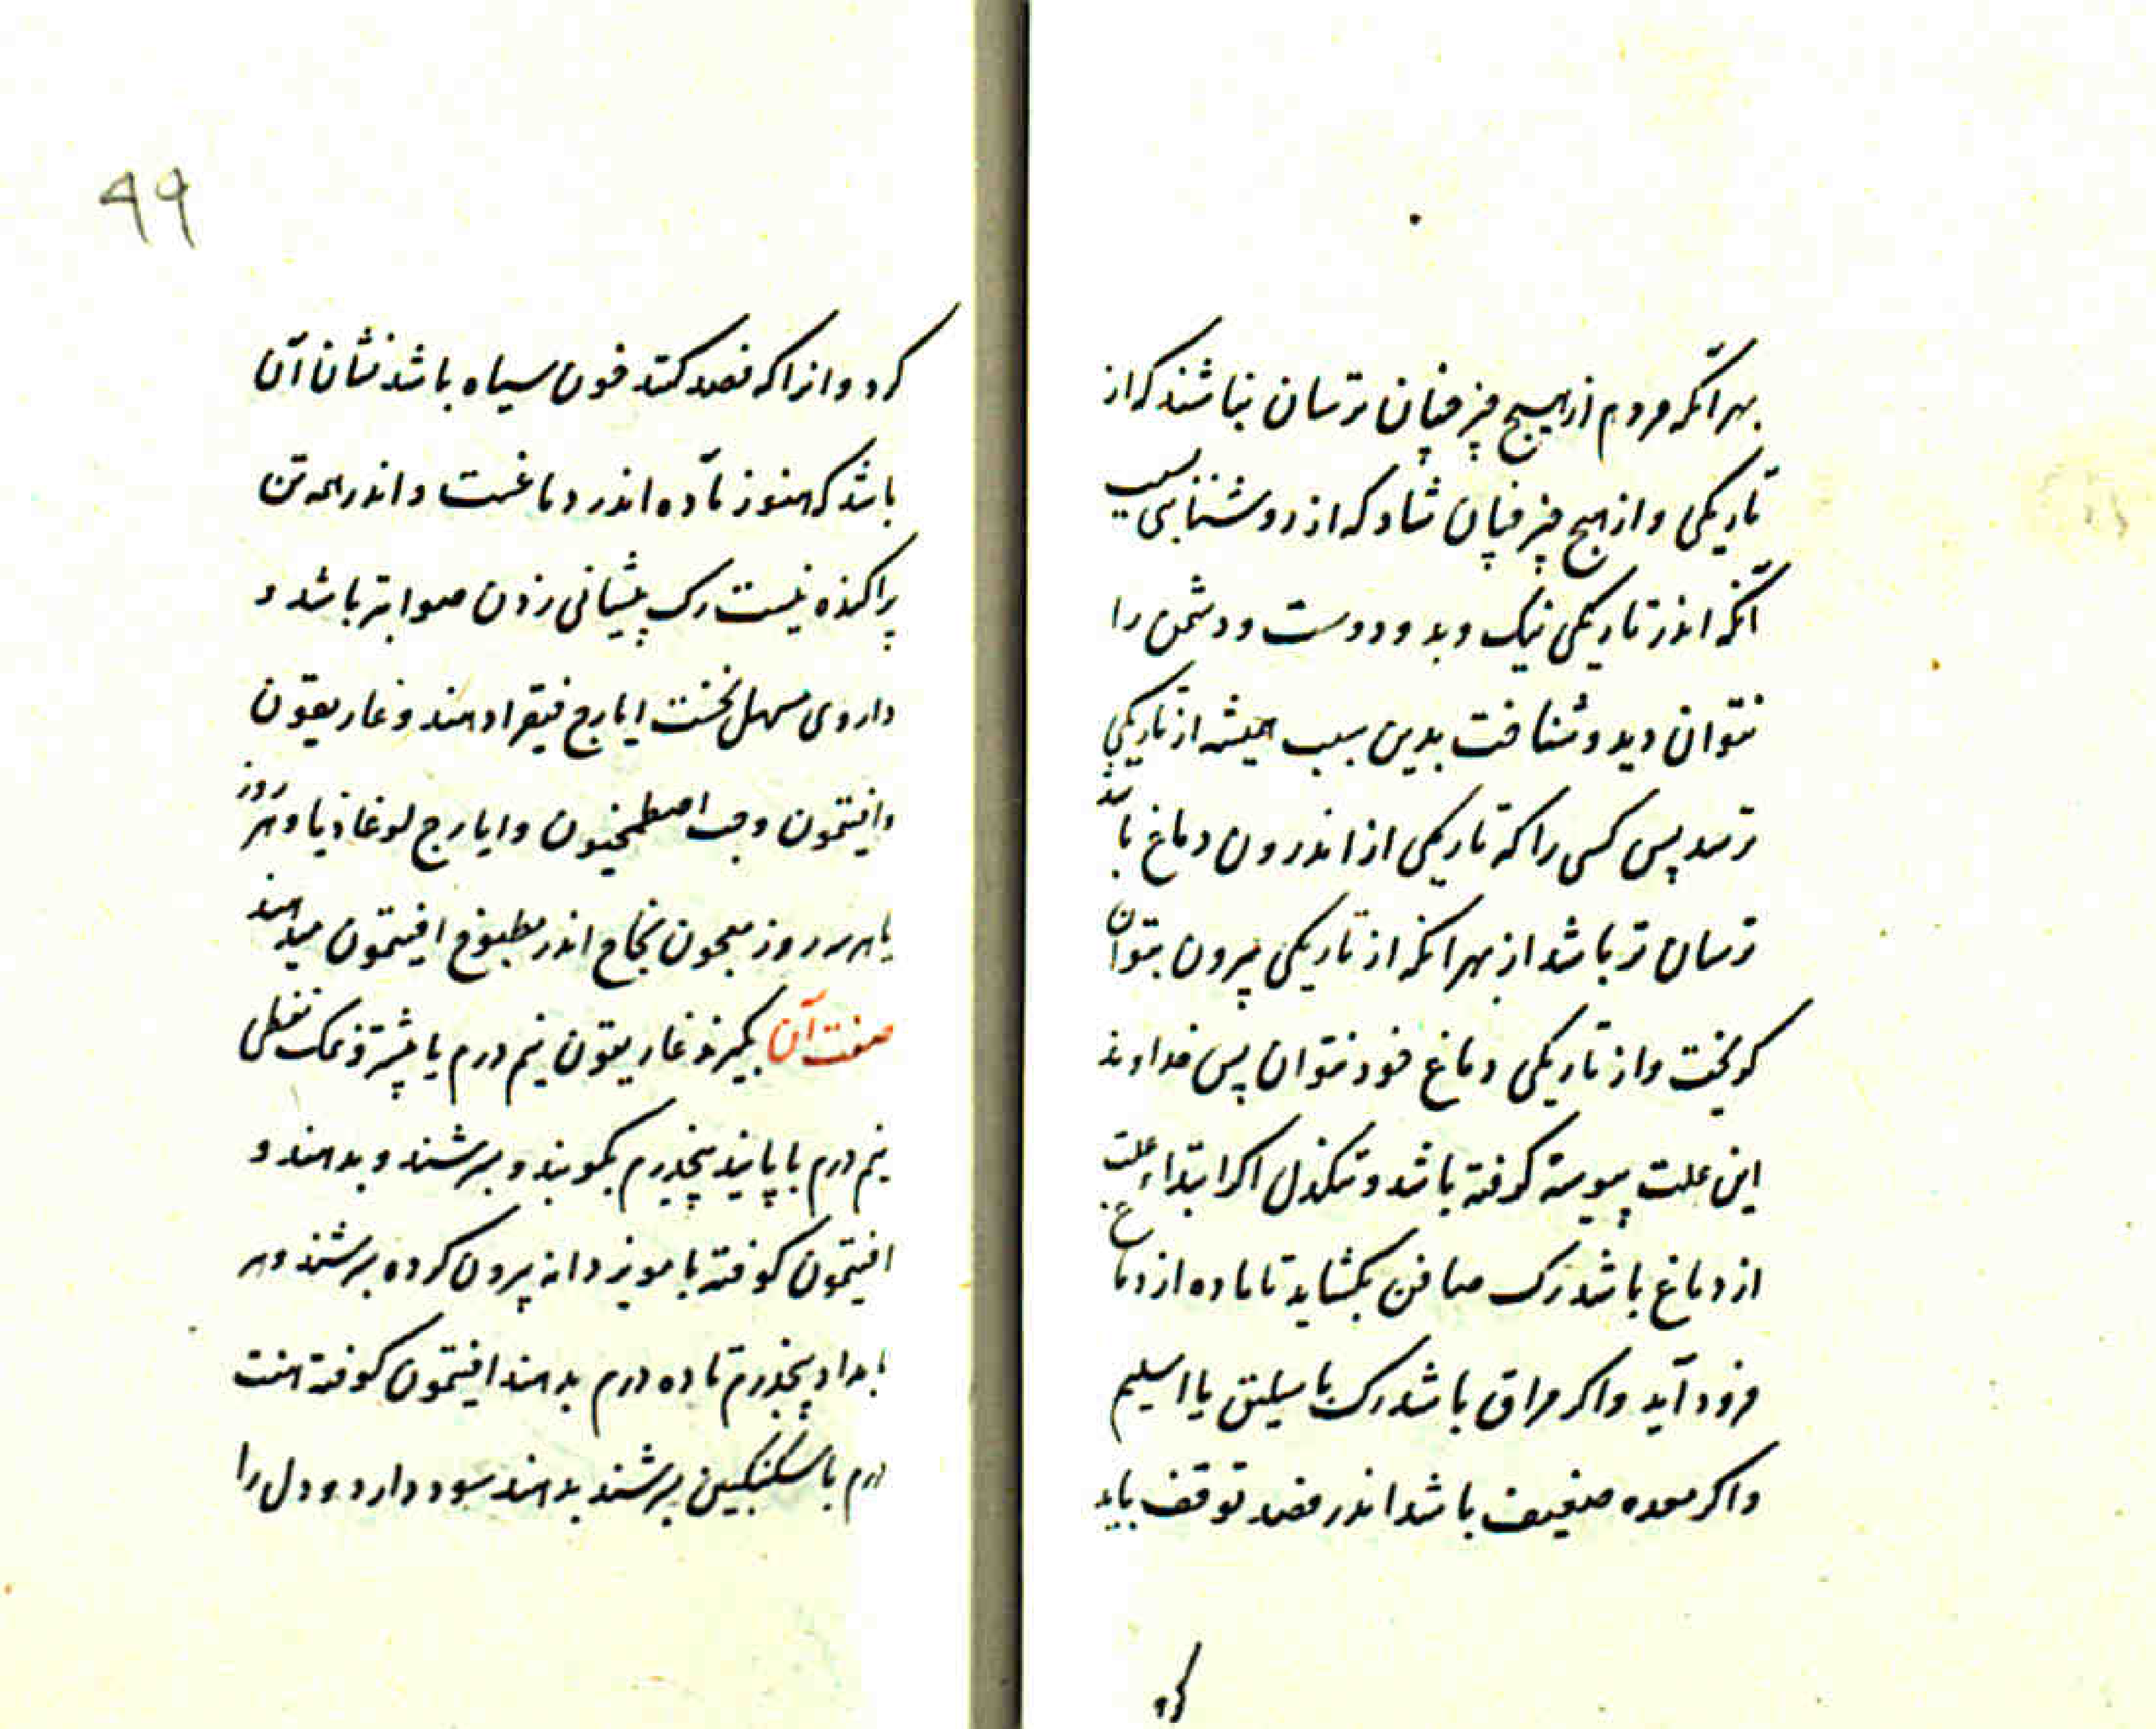 بهر آنکه مردم از هیچ چیز چنان ترسان نباشند که از
تاریکی و از هیچ چیز چنان شاد که از روشنایی بسبب
آنکه اندر تاریکی نیک و بد و دوست و دشمن را
نتوان دید و شناخت بدین سبب همیشه از تاریکی
ترسد پس کسی را که تاریکی از اندرون دماغ باشد
ترسان تر باشد از بهر آنکه از تاریکی بیرون بتوان
گریخت و از تاریکی دماغ خود نتوان پس خداوند
این علت پیوسته گرفته باشد و تنکدل اگر ابتداء علت
از دماغ باشد رک صافن بکشاید تا ماده از دماغ
فرود آید و اگر مراق باشد رک باسلیق یا اسیلم
و اگر معده ضعیف باشد اندر فصد توقف باید
کرد
۹۹
کرد و از اکه فصد کنند خون سیاه باشد نشان آن
باشد که هنوز ماده اندر دماغست و اندر همه تن
پراکنده نیست رک پیشانی زدن صوابتر باشد و
داروی مسهل نخست ایارج فیقرا دهند و غاریقون
و افیتمون و حب اصطمخیون و ایارج لوغاذیا و هر روز
یا هر سه روز معجون نجاح اندر مطبوخ افیتمون میدهند
صفت آن بگیرند غاریقون نیم درم یا بیشتر و نمک نفطی
نیم درم با پانیذ پنجدرم بکوبند و بسرشند و بدهند و
افیتمون کوفته با مویز دانه بیرون کرده بسرشند و هر
بامداد پنجدرم تا ده درم بدهند افیتمون کوفته هفت
درم با سکنکبین بسرشند بدهند سود دارد و دل را